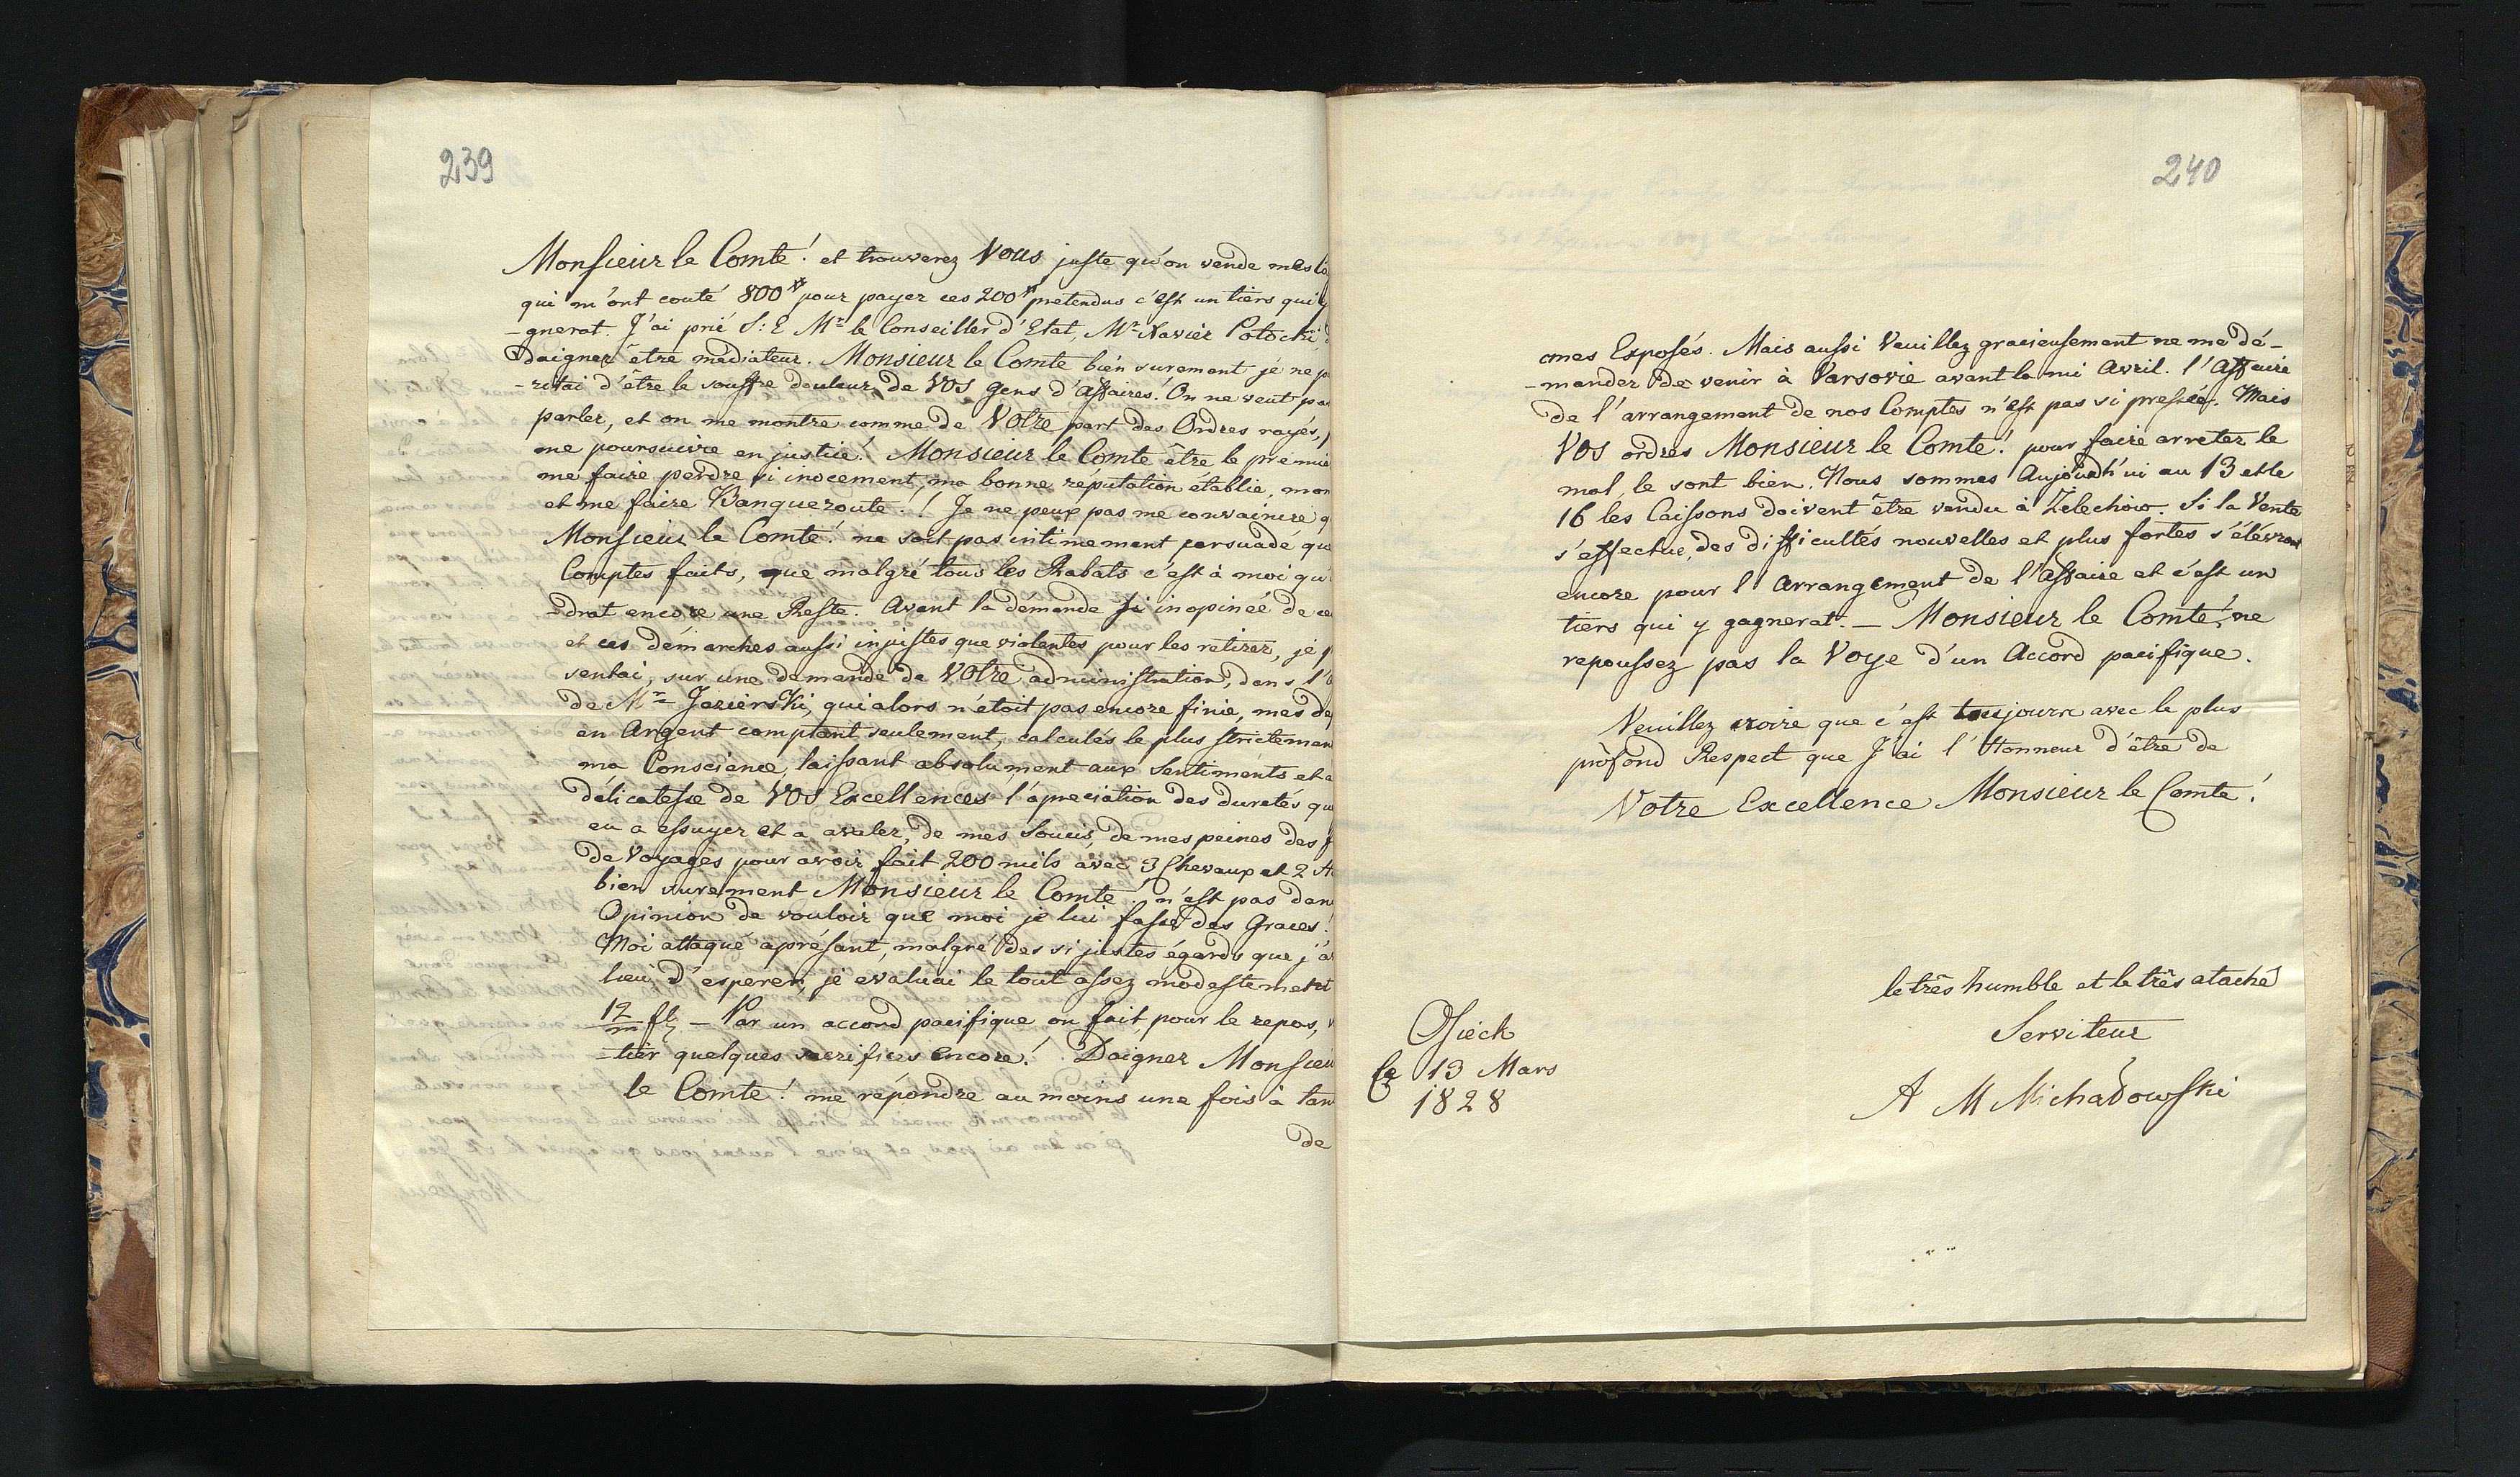 239
Monsieur le Comte! et trouverez Vous juste qu'on vende mes
qui m'ont couté 800# pour payer ces 200# pretendus c'est un tiers qui y
-gnerat. J'ai prié S: E Mr le Conseiller d'Etat, Mr Xavier Potocki,
daigner être mediateur. Monsieur le Comte bien surement je ne
-ritai d'être le souffre douleur de Vos gens d'Affaires! On ne veut pas
parler, et on me montre comme de Votre part des Ordres rayés,
me poursuivre en justice! Monsieur le Comte être le premie
me faire perdre si inocement, ma bonne reputation établie, mon
et me faire Banqueroute.! Je ne peux pas me convaincre q
Monsieur le Comte! ne soit pas intimement persuadé que
Comptes faits, que malgré tous les Rabats c'est à moi qu'
-drat encore une Reste. Avant la démande si inopinée de ce
et ces démarches aussi injustes que violentes pour les retirer, je
sentai, sur une demande de Votre administration, dans l'
de Mr Jezierski, qui alors n'étoit pas encore finie, mes de
en Argent comptant seulement, calculés le plus strictemen
ma Conscience, laissant absolument aux Sentiments et
délicatesse de Vos Excellences l'apreciation des duretés que
eu a essuyer et a avaler, de mes Soucis, de mes peines des
de Voyages pour avoir fait 200 mils avec 3 Chevaux et 2
bien surement Monsieur le Comte! n'est pas dans
Opinion de vouloir que moi je lui fasse des Graces!
Moi attaqué aprésant, malgré des si justes égards que j'a
lieu d'esperer, je evaluai le tout assez modestement
12/m fl. – Par un accord pacifique on fait, pour le repos,
-tier quelques sacrifices encore! Daignez Monsieu
le Comte! me répondre au moins une fois à tan
de
240
mes Exposés. Mais aussi Veuillez gracieusement ne me dé-
-mander de venir à Varsovie avant la mi Avril. l'Affaire
de l'arrangement de nos Comptes n'est pas si pressée. Mais
Vos ordres Monsieur le Comte! pour faire arreter le
mal, le sont bien. Nous sommes Aujourdh'ui au 13 et le
16 les Caissons doivent être vendu à Zelechow. Si la Vente
s'effectue, des difficultés nouvelles et plus fortes s'élévront
encore pour l'Arrangement de l'Affaire et c'est un
tiers qui y gagnerat. – Monsieur le Comte! ne
repoussez pas la Voye d'un Accord pacifique.
Veuillez croire que c'est toujours avec le plus
profond Respect que J'ai l'Honneur d'être de
Votre Excellence Monsieur le Comte!
le três humble et le três ataché
Serviteur
A M Michałowski
Osieck
le 13 Mars
1828